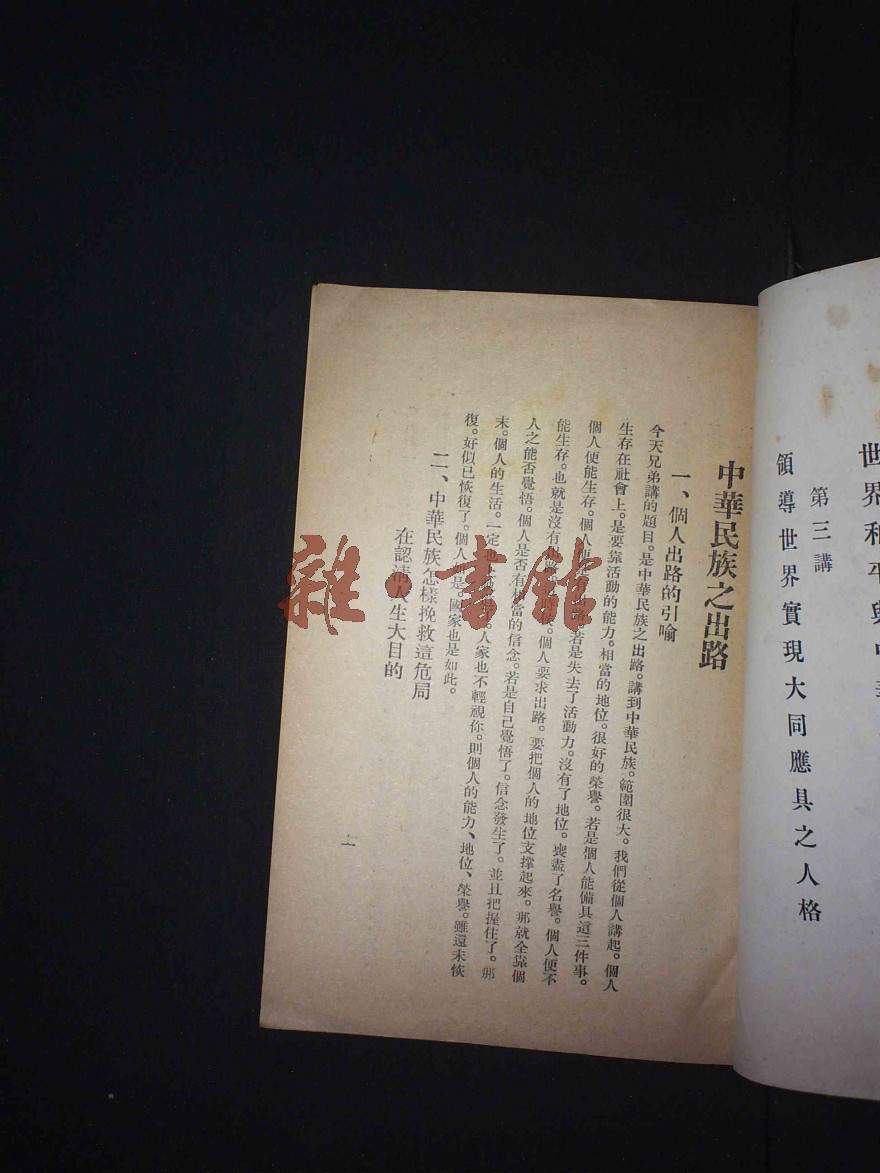 世界和平與中華
第三講
領導世界實現大同應具之人格
中華民族之出路
一、個人出路的引喻
今天兄弟講的題目。是中華民族之出路。講到中華民族。範圍很大。我們從個人講起。個人
生存在社會上。是要靠活動的能力。相當的地位。很好的榮譽。若是個人能備具這三件事。
個人便能生存。個人便有出路。若是失去了活動力。沒有了地位。喪盡了名譽。個人便不
能生存。也就是沒有。個人要求出路。要把個人的地位支撐起來。那就全靠個
人之能否覺悟。個人是否有相當的信念。若是自己覺悟了。信念發生了。並且把握住了。那
末。個人的生活。一定也人家也不輕視你。則個人的能力、地位、榮譽。雖還未恢
復。好似已恢復了。個人是。國家也是如此。
二、中華民族怎樣挽救這危局
在認清人生大目的
雜·書館